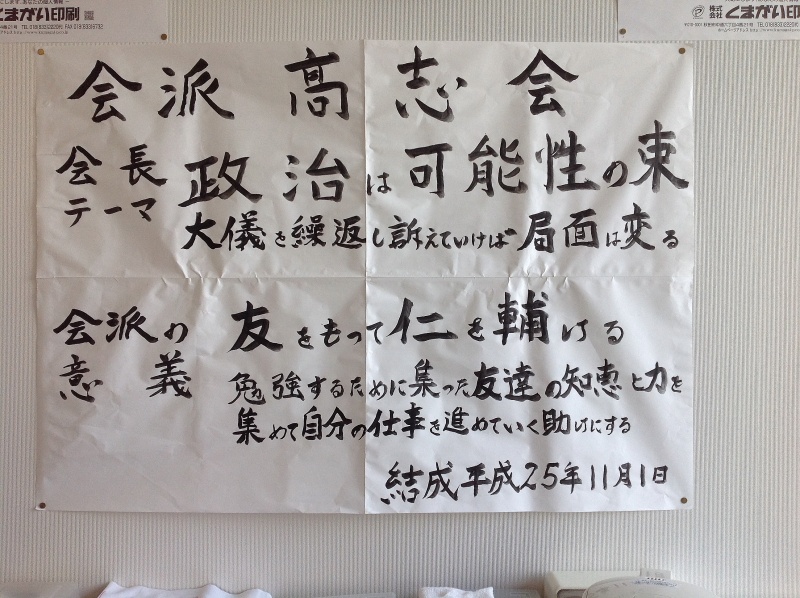 くまがい印刷
株式会社 くまがい印刷
会派 高志会
会長 政治は可能性の束
テーマ 大儀を繰返し訴えていけば局面は変る
会派の 友をもって仁を輔ける
意義 勉強するために集った友達の知恵と力を
集めて自分の仕事を進めていく助けにする
結成平成25年11月1日